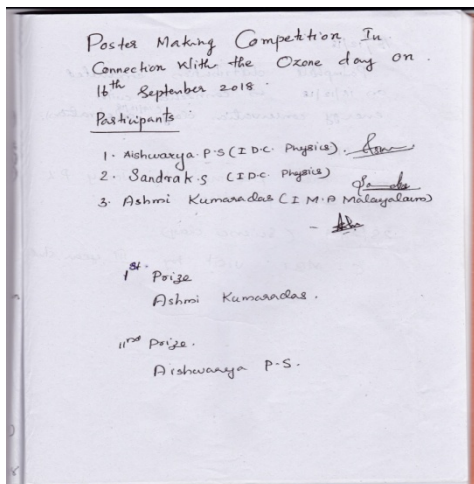 Poster Making Competition In
Connection With the Ozone day on
16th September 2018.
Participants
1. Aishwarya. P.S (I D.C. Physics).
2. Sandra K.S (I D.C. Physics)
3. Ashmi Kumaradas (I M.A Malayalam)
1st. Prize
Ashmi Kumaradas.
IInd Prize.
Aishwarya P.S.